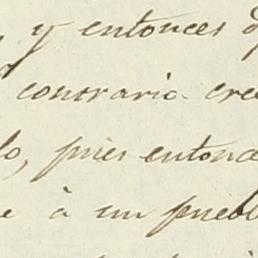 y entonces
contrario cre
lo, pues entonc
e à un pueblo